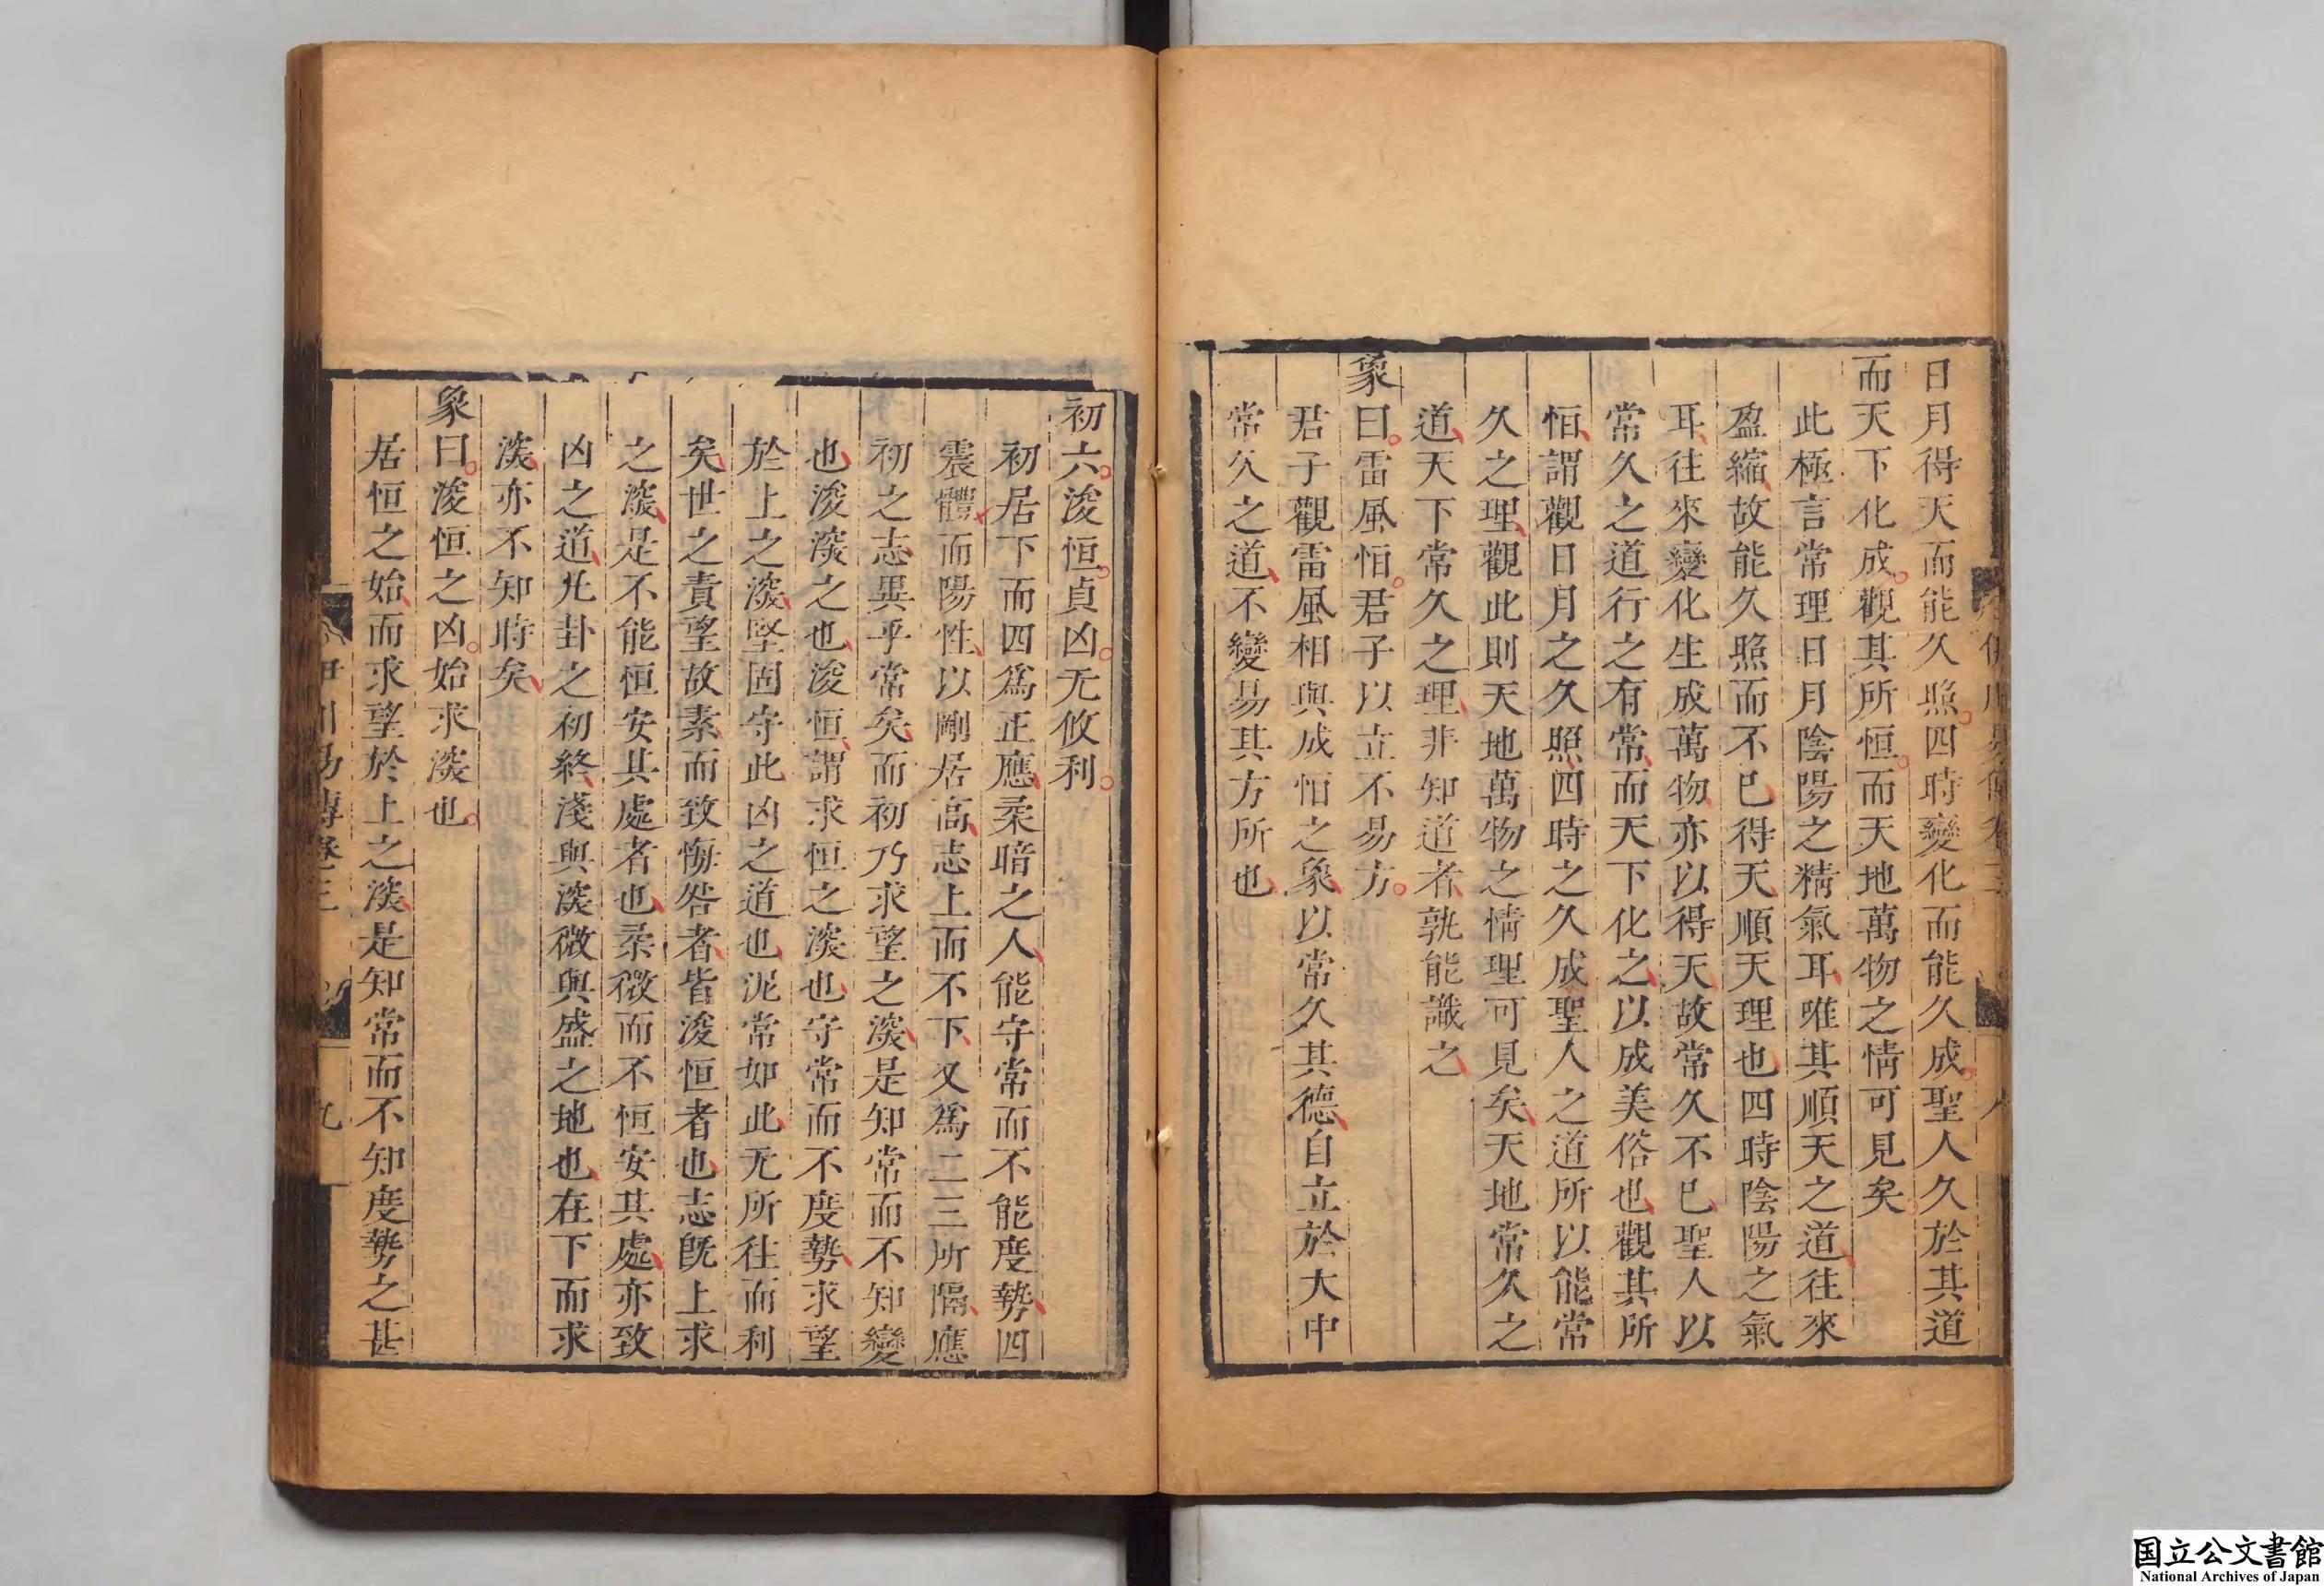 日月得天而能久照四時變化而能久成聖人久於其道
而天下化成觀其所恒而天地萬物之情可見矣
此極言常理日月陰陽之精氣耳唯其順天之道往來
盈縮故能久照而不已得天順天理也四時陰陽之氣
耳往來變化生成萬物亦以得天故常久不已聖人以
常久之道行之有常而天下化之以成美俗也觀其所
恒謂觀日月之久照四時之久成聖人之道所以能常
久之理觀此則天地萬物之情理可見矣天地常久之
道天下常久之理非知道者孰能識之
象曰雷風恒君子以立不易方
君子觀雷風相與成恒之象以常久其德自立於大中
常久之道不變易其方所也
初六浚恒貞凶无攸利
初居下而四爲正應柔暗之人能守常而不能度勢四
震體而陽性以剛居高志上而不下又爲二三所隔應
初之志異乎常矣而初乃求望之深是知常而不知變
也浚深之也浚恒謂求恒之深也守常而不度勢求望
於上之深堅固守此凶之道也泥常如此无所往而利
矣世之責望故素而致悔咎者皆浚恒者也志既上求
之深是不能恒安其處者也柔微而不恒安其處亦致
凶之道凡卦之初終淺與深微與盛之地也在下而求
深亦不知時矣
象曰浚恒之凶始求深也
居恒之始而求望於上之深是知常而不知度勢之甚
伊川易傳卷三
九
国立公文書館
National Archives of Japan